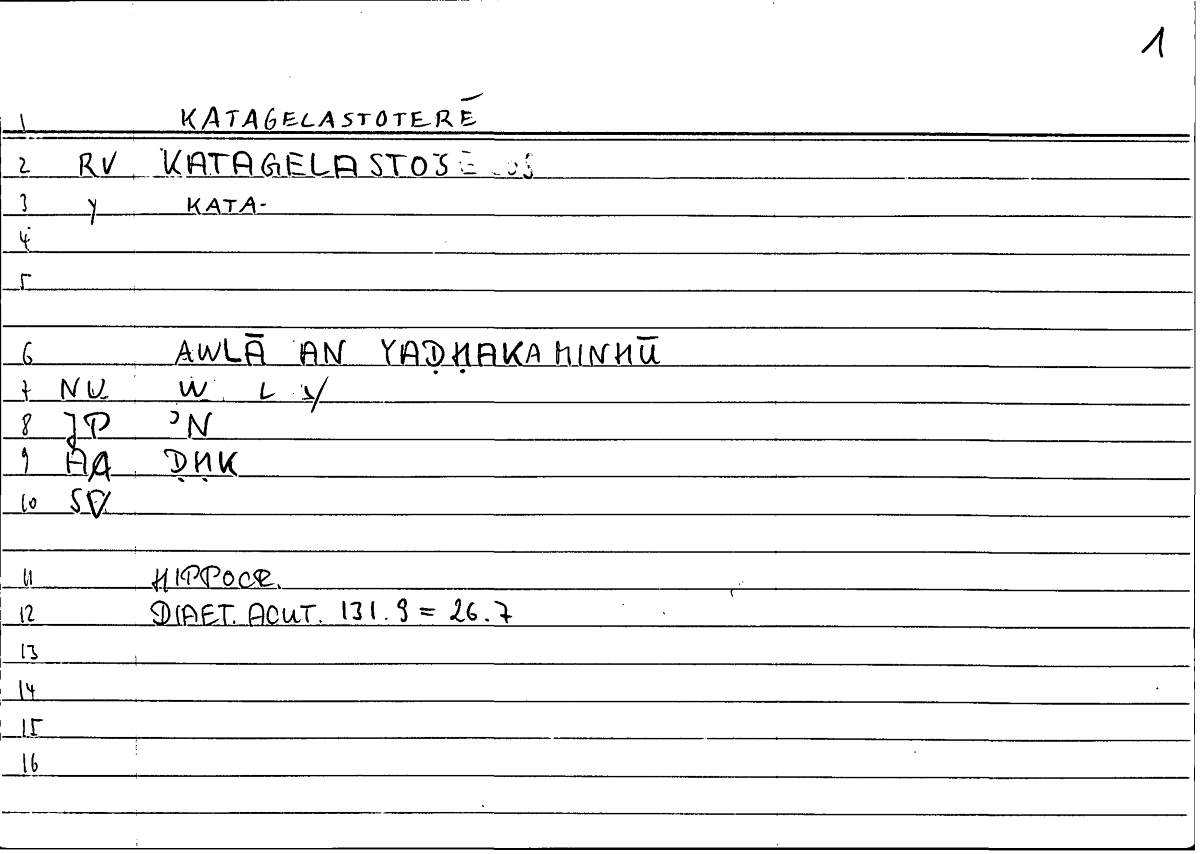 1
1 KATAGELASTOTERĒ
2 RV KATAGELASTOS
3 Y KATA-
4
5
6 AWLĀ AN YAḌḤAKA MINHŪ
7 NU W L Y
8 JP ʾN
9 AQ ḌḤK
10
11 HIPPOCR.
12 DIAET. ACUT. 131.9 = 26.7
13
14
15
16